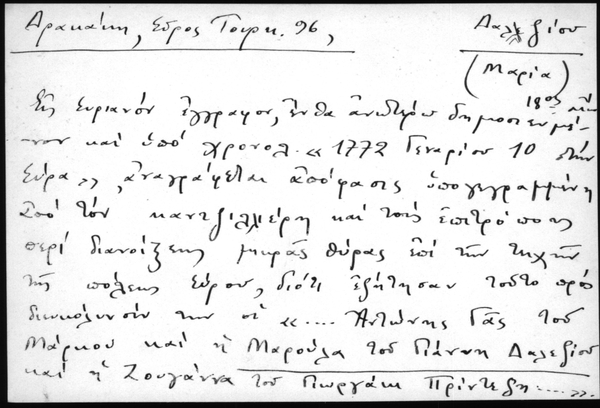 Δρακάκη, Σύρος Τουρκ. 96,
Δαλεζίου
(Μαρία)
18ος
Εἰς Συριανόν ἔγγραφον, ἔνθα ἀνωτέρω δημοσιευμέ-
νον καί ὑπό χρονολ. « 1772 Γεναρίου 10 στήν
Σύρα », ἀναγράφεται ἀπόφασις ὑπογεγραμμένη
ἀπό τόν καντζιλλιέρη καί τούς ἐπιτρόπους
περί διανοίξεως μικρᾶς θύρας ἐπί τῶν τειχῶν
τῆς πόλεως Σύρου, διότι ἐζήτησαν τοῦτο πρός
διευκόλυνσίν των οἱ «.... Ἀντώνης Γᾶς τοῦ
Μάρκου καί ἡ Μαρούλα τοῦ Γιάννη Δαλεζίου
καί ἡ Ζουγάννα τοῦ Γιωργάκη Πρίντεζη .....».